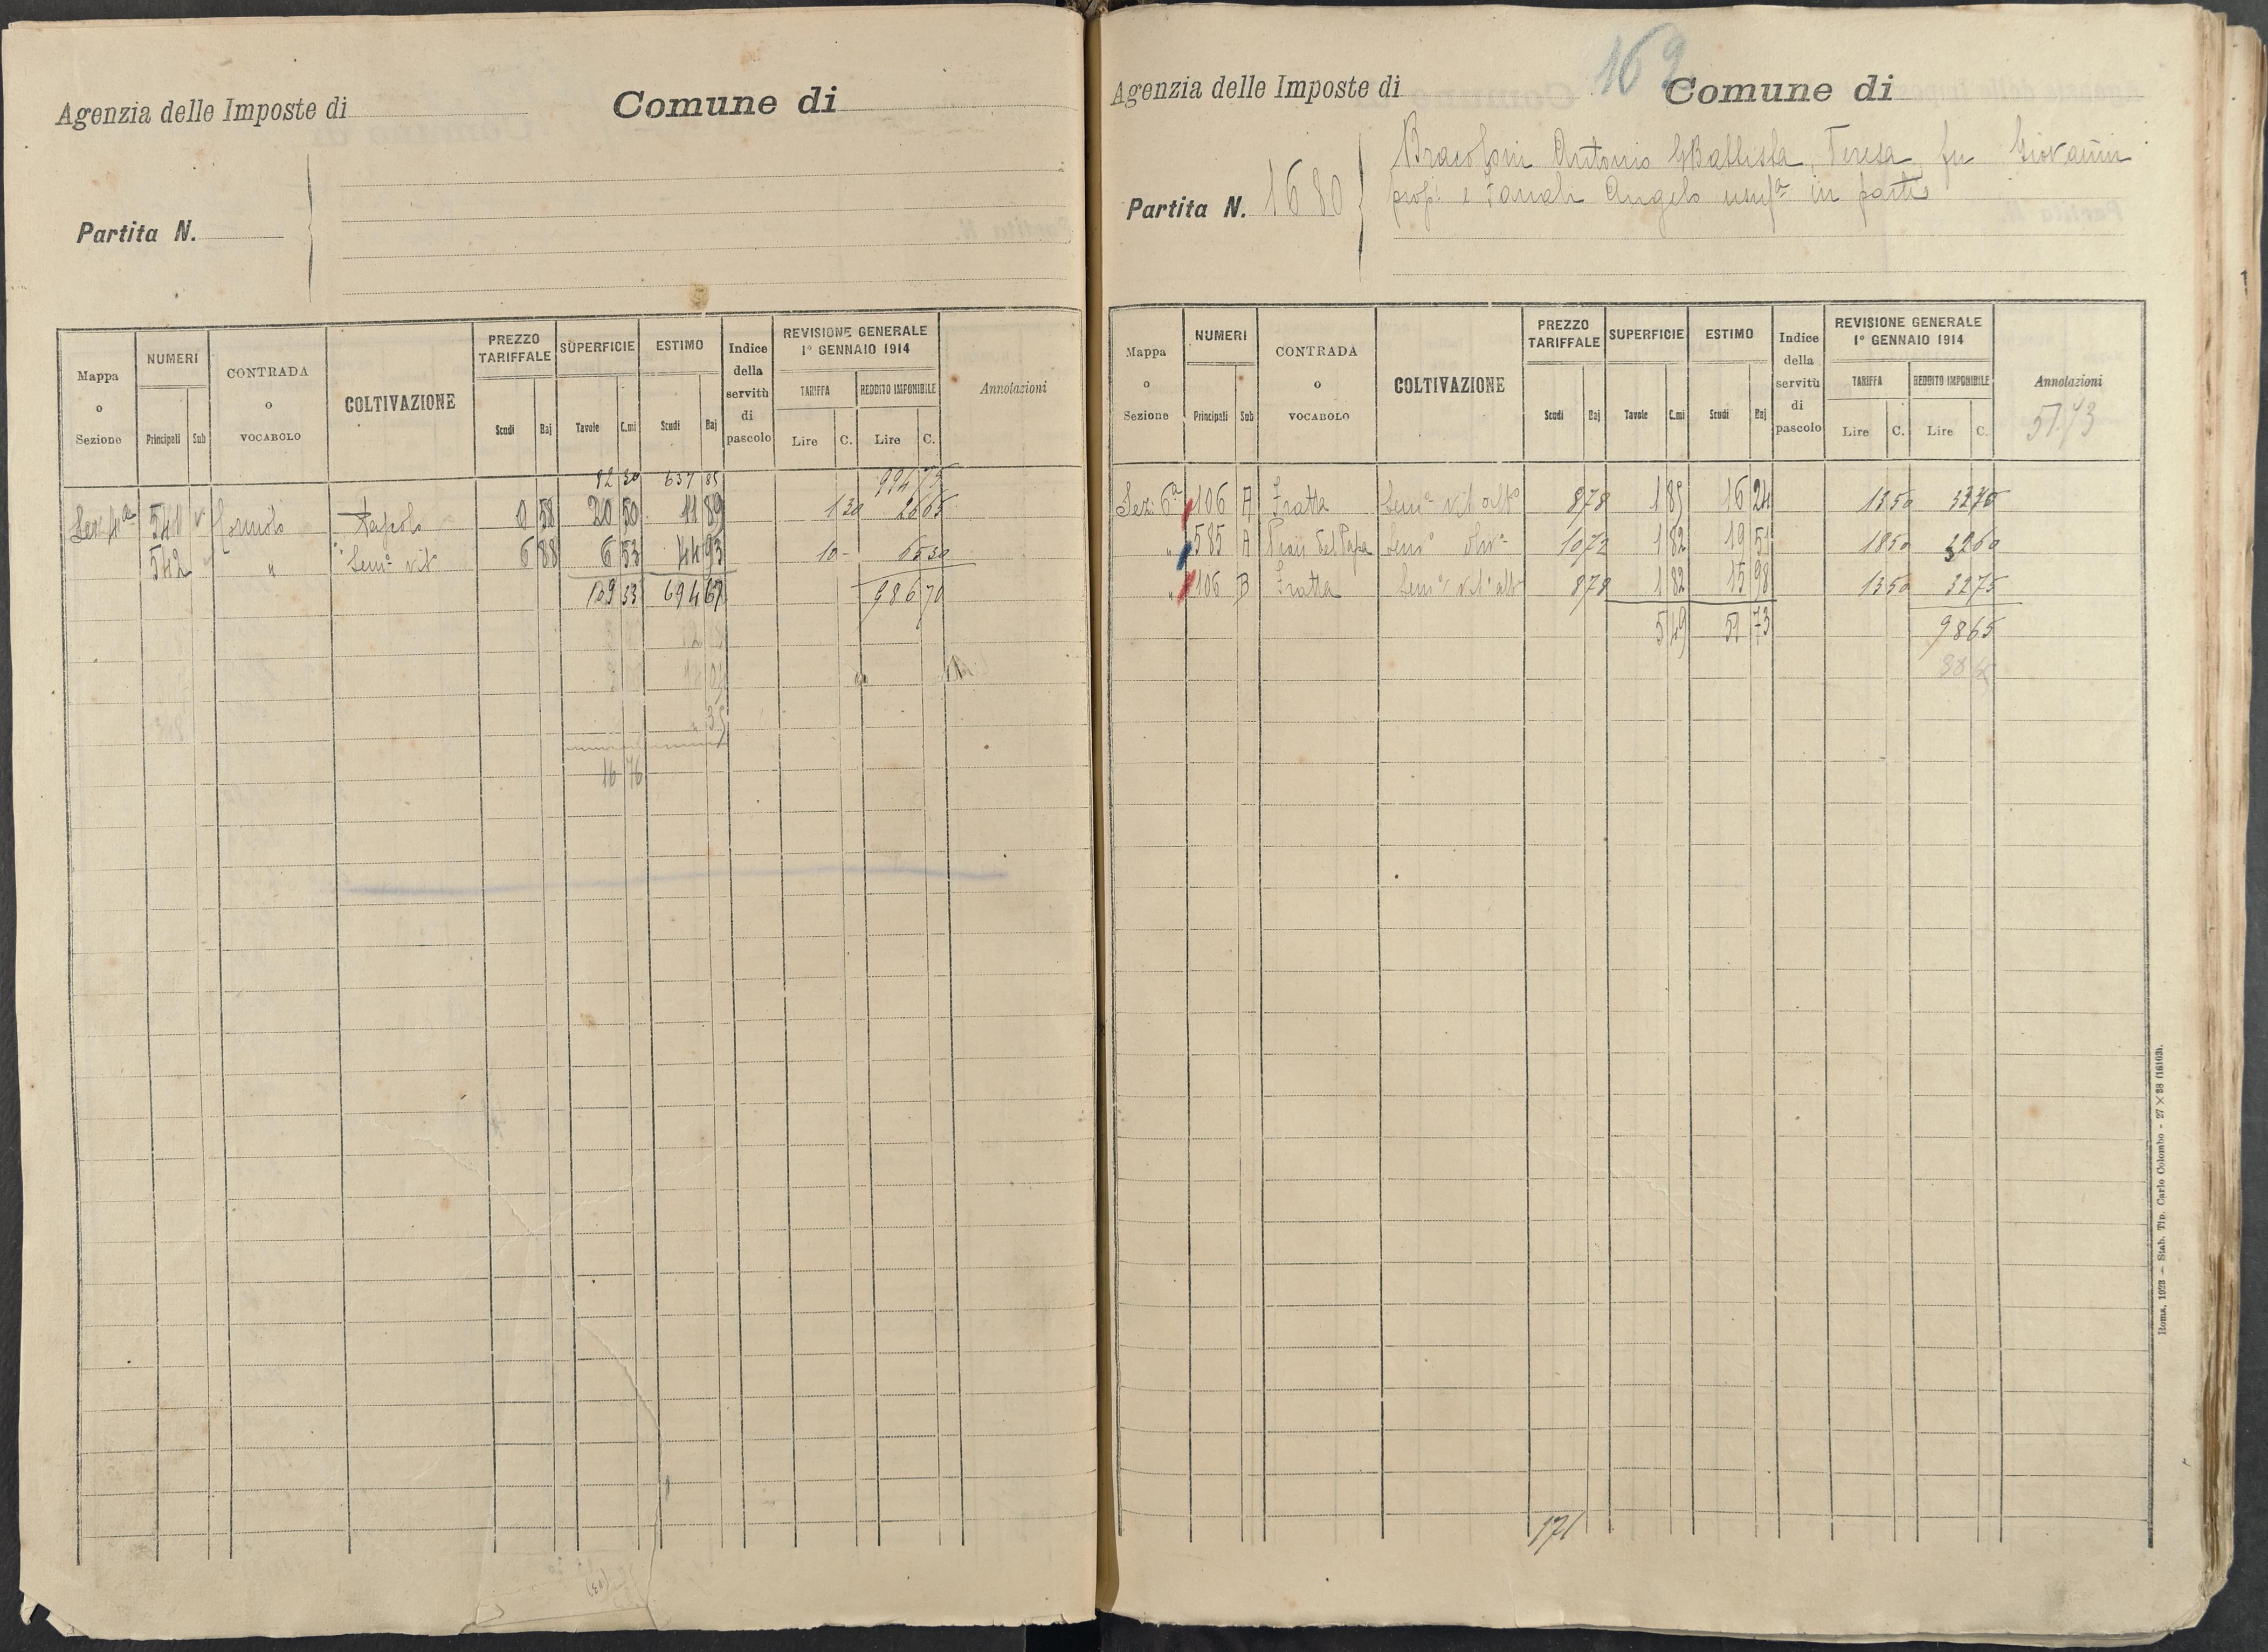 Agenzia delle Imposte di
Comune di
Partita N.
Mappa o Sezione
NUMERI
Principali
Sub
CONTRADA o VOCABOLO
COLTIVAZIONE
PREZZO TARIFFALE
Scudi
Baj
SUPERFICIE
Tavole
C.mi
ESTIMO
Scudi
Baj
Indice della servitù di pascolo
REVISIONE GENERALE 1° GENNAIO 1914
TARIFFA
Lire
C.
REDDITO IMPONIBILE
Lire
C.
Annotazioni
82 30 637 85
541 0 58 20 50 11 89 1 30 26 65
542 " Sem° vit° 6 88 6 53 44 93 10 - 65 30
109 33 694 67 986 70
" 35
16 76
169
Agenzia delle Imposte di
Comune di
Partita N. 1680
Antonio GBattista, Teresa, fu Giovanni
prop. e Angelo usufª in parte
Mappa o Sezione
NUMERI
Principali
Sub
CONTRADA o VOCABOLO
COLTIVAZIONE
PREZZO TARIFFALE
Scudi
Baj
SUPERFICIE
Tavole
C.mi
ESTIMO
Scudi
Baj
Indice della servitù di pascolo
REVISIONE GENERALE 1° GENNAIO 1914
TARIFFA
Lire
C.
REDDITO IMPONIBILE
Lire
C.
Annotazioni
51.73
Sez. 6ª 106 A Fratta Sem° vit° alb° 8 78 1 85 16 24 13 50
" 585 A Pian del Papa Sem° oliv° 10 72 1 82 19 51 18 50
" 106 B Fratta Sem° vit° alb° 8 78 1 82 15 98 13 50 32 75
5 49 51 73 98 65
171
Roma, 1923 — Stab. Tip. Carlo Colombo - 27 × 38 (16163).